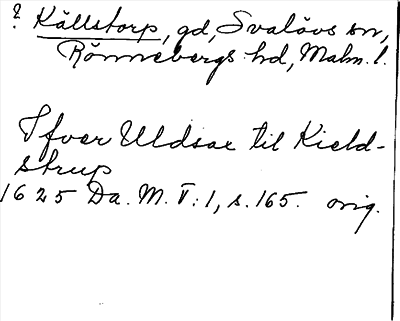 ? Källstorp, gd, Svalövs sn,
Rönnebergs hd, Malm. l.
Ifver Uldsax til Kield-
strup
1625 Da. M. V: 1, s. 165. orig.